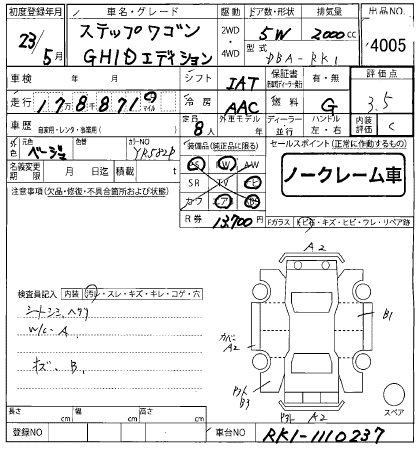 初度登録年月 車名・グレード 駆動 ドア数・形状 排気量 出品NO.
23/5月 ステップワゴン 2WD・4WD 5W 2000cc 4005
GHIDエディション 型式 DBA-RK1
車検 年 月 シフト IAT 保証書 有・無 評価点
走行 178871 マイル 冷房 AAC 燃料 G 3.5
車歴 自家用・レンタ・事業用( ) 定員 8人 外車モデル 年 ディーラー・並行 ハンドル 左・右 内装評価 C
外色 元色 ベージュ 色替 カラーNO YR582P 装備品(純正品に限る) セールスポイント(正常に作動するもの)
名義変更期限 月 日迄 積載 t PS PW AW ノークレーム車
注意事項(欠品・修復・不具合箇所および状態) SR TV ナビ
カワ エアB
R券 13,700円 Fガラス トビ石・キズ・ヒビ・ウレ・リペア跡
A2
検査員記入 内装 汚レ・スレ・キズ・キレ・コゲ・穴
シートシミ、ヘタリ
W/C-A
キズ、B
B1
カバー A2
B3
A2
スペア
長さ cm 幅 cm 高さ cm
登録NO 車台NO RK1-1110237